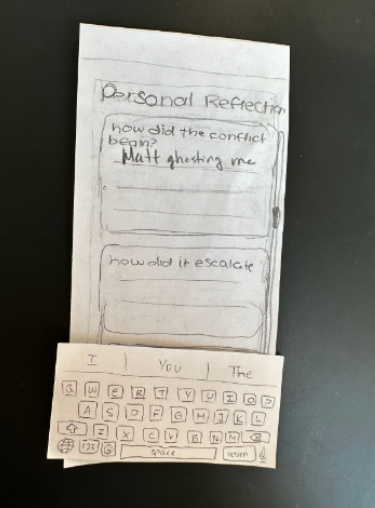 Personal Reflection
how did the conflict
begin?
Matt ghosting me
how did it escalate
I | You | The
Q W E R T Y U I O P
A S D F G H J K L
Z X C V B N M
123 space return